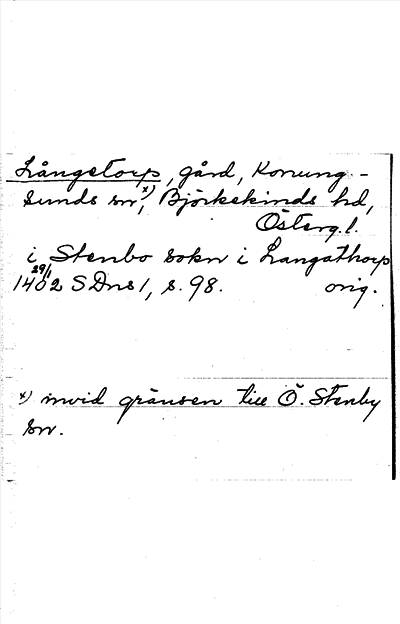 Långetorp, gård, Konung-
sunds sn x), Björkekinds hd,
Österg. l.
i Stenbo sokn i Langathorp
29/1 1402 SDns 1, s. 98. orig.
x) invid gränsen till Ö. Stenby
sn.